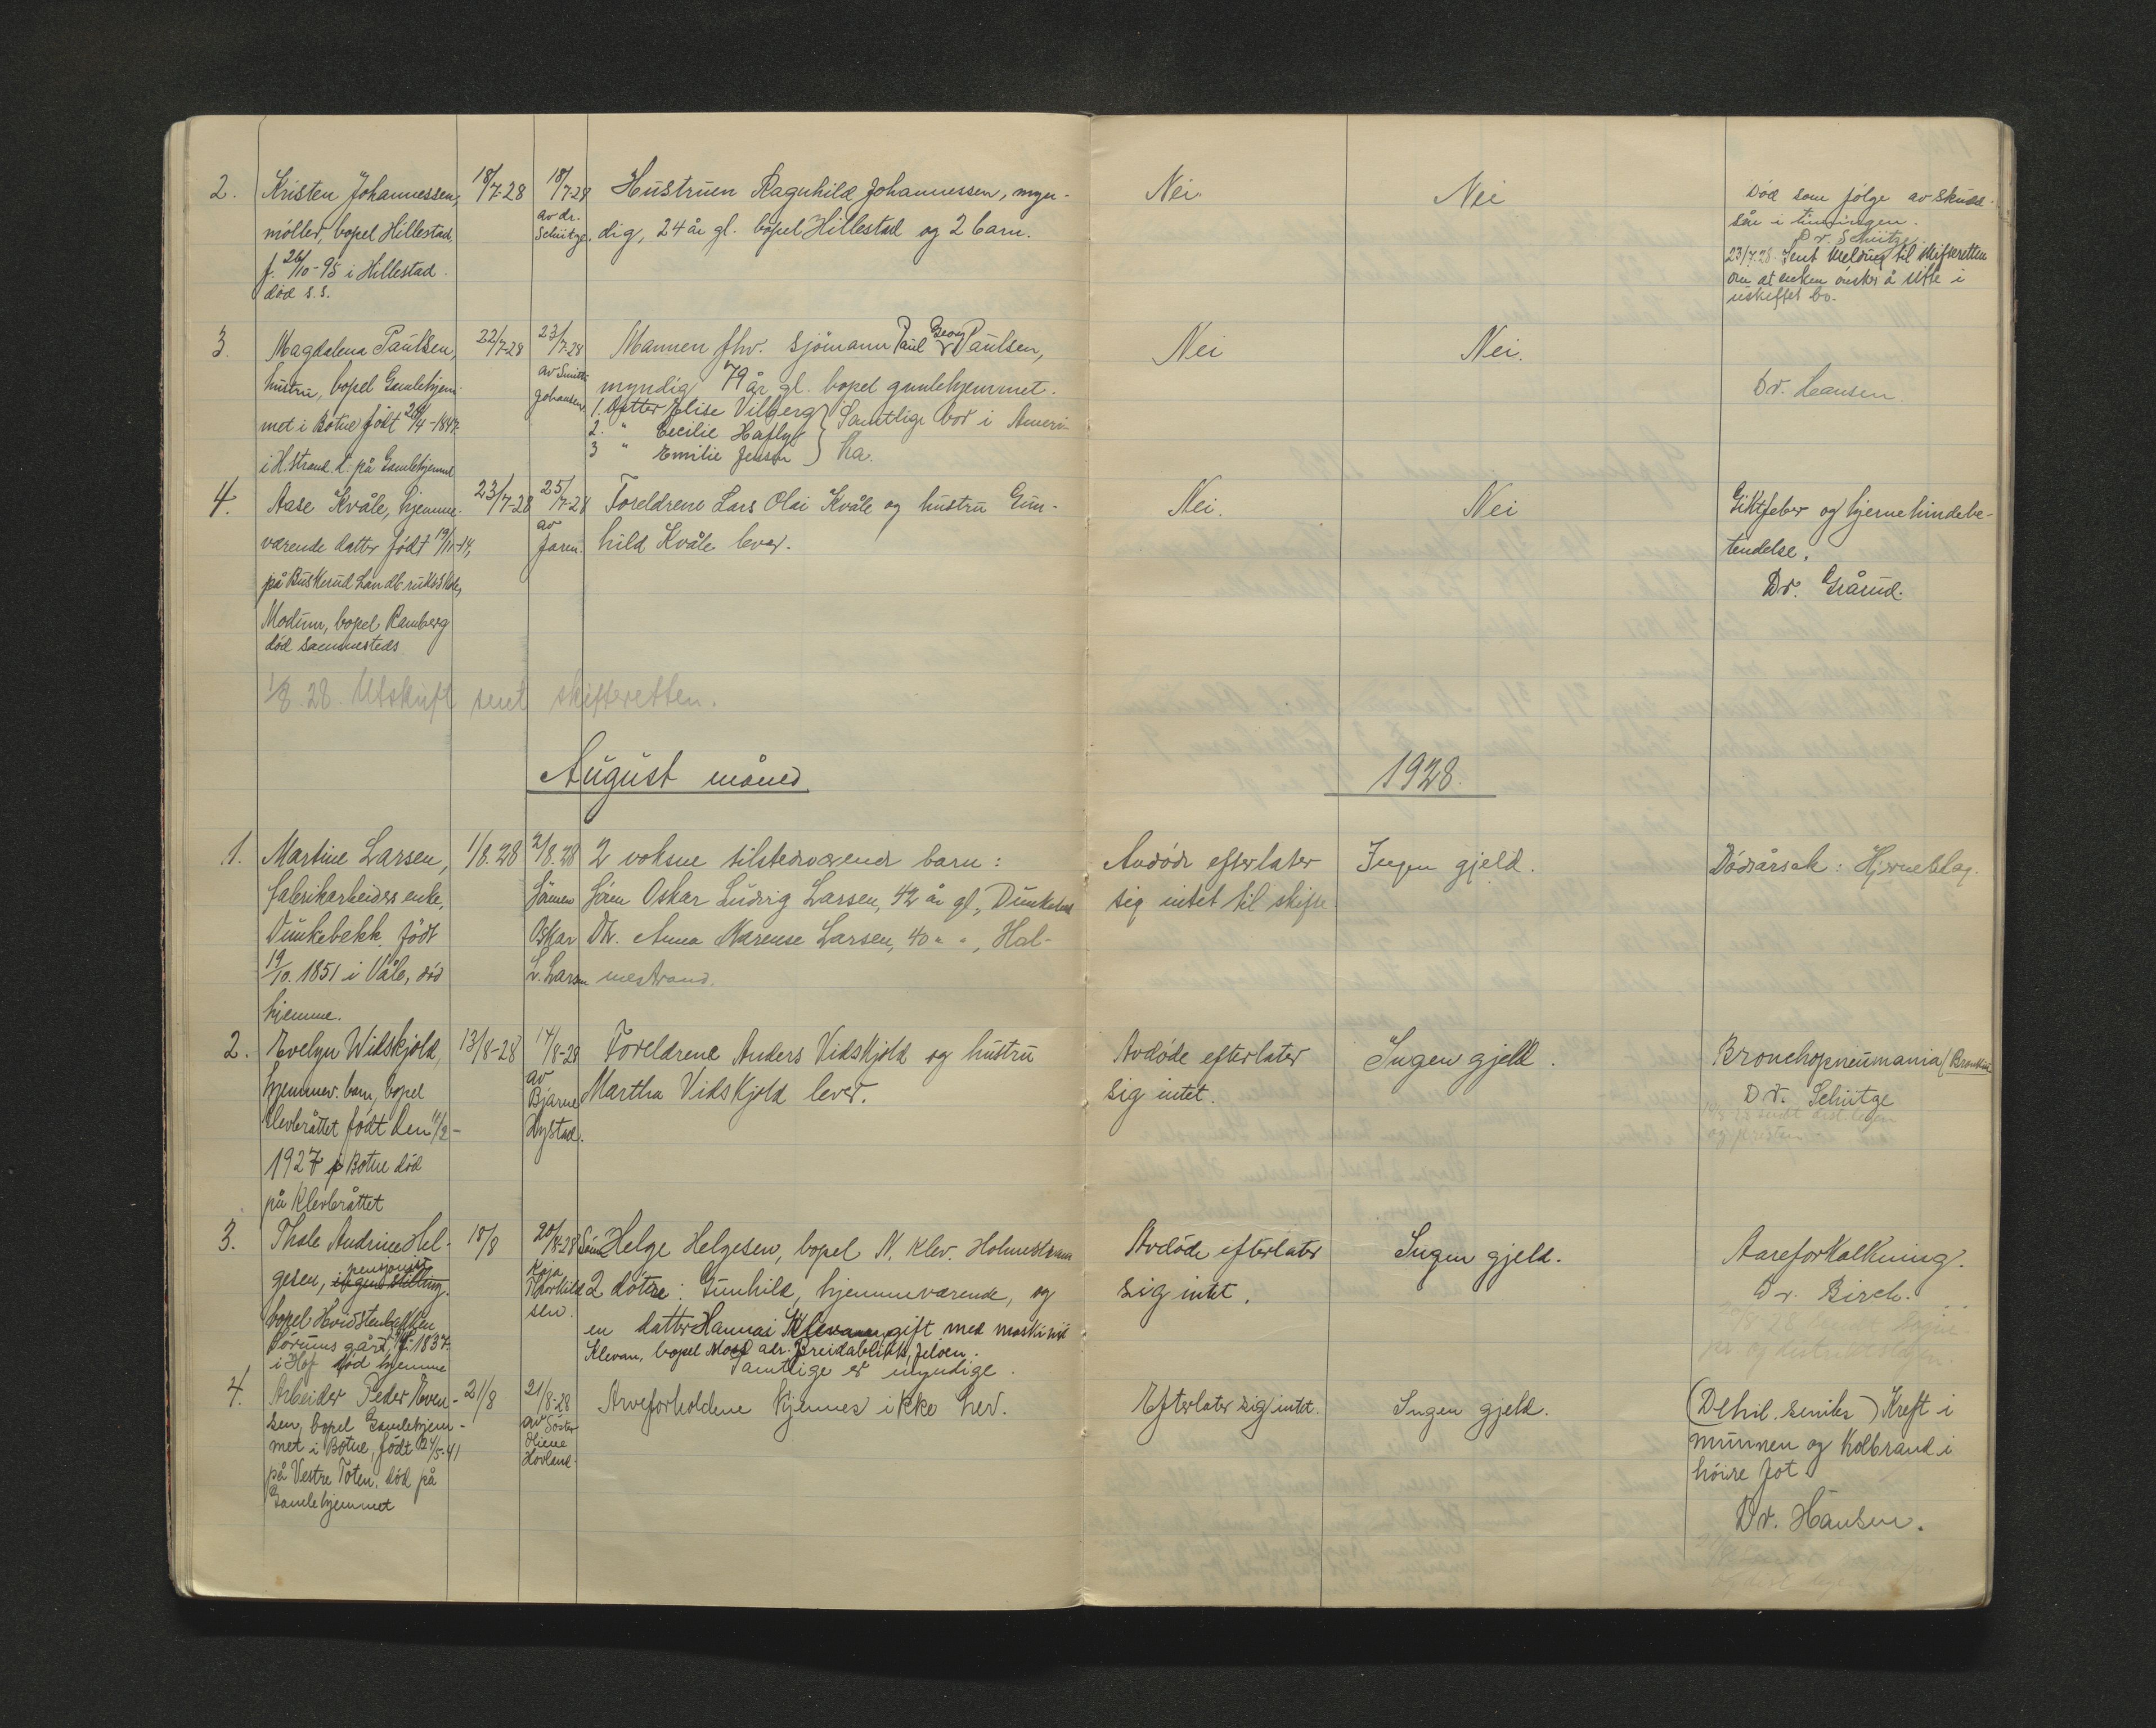 2. Kristen Johannessen, 18/7-28 18/7-28 Hustruen Ragnhild Johannessen, myn- Nei. Nei Død som følge av skudd-
møller, bopel Hillestad av dr. Schütze. dig, 24 år gl. bopel Hillestad og 2 barn. sår i tinningen.
f. 26/10-95 i Hillestad. Dr. Schütze
død s.s. 23/7.28 Sent melding til skifteretten
om at enken ønsker å sitte i
uskiftet bo.
3. Magdalena Paulsen, 22/7-28 23/7-28 Mannen fhv. sjømann Paul Georg Paulsen, Nei Nei.
hustru, bopel Gamlehjem- av Smith Johansen myndig 79 år gl. bopel gamlehjemmet. Dr. Hansen.
met i Botne født 26/4-1847 1. Datter Elise Vilberg } Samtlige bor i Ameri-
2. " Cecilie Haflye
i H.strand d. på Gamlehjemmet 3 " Emilie Jensen } ka.
4. Aase Kvåle, hjemme- 23/7-28 25/7-28 Foreldrene Lars Olai Kvåle og hustru Gun- Nei. Nei Giktfeber og hjernehindebe-
værende datter født 19/11-14, av faren. hild Kvåle lever. tendelse.
på Buskerud Landbruksskole, Dr. Gårud.
Modum, bopel Ramberg
død sammesteds
1/8.28. Utskrift sent skifteretten.
August måned 1928.
1. Martine Larsen, 1/8.28 2/8.28 2 voksne tilstedeværende barn: Avdøde efterlater Ingen gjeld. Dødsårsak: Hjerneslag.
fabrikarbeiders enke, Sønnen Søn Oskar Ludvig Larsen, 42 år gl., Dunkebekk sig intet til skifte.
Dunkebekk. født Oskar Dtr. Anna Marense Larsen, 40 " ", Hol-
19/10. 1851 i Våle, død L. Larsen mestrand.
hjemme.
2. Evelyn Widskjold, 13/8-28 14/8-28 Foreldrene Anders Vidskjold og hustru Avdøde efterlater Ingen gjeld. Bronchopneumania (Bronkitt
hjemmev. barn, bopel av Martha Vidskjold lever. sig intet. Dr. Schütze
Klevbråttet født den 11/2- Bjarne Nystad.
1927 i Botne død
på Klevbråttet
3. Thale Andrine Hel- 18/8 20/8-28 Søn Helge Helgesen, bopel N. Klev. Holmestrand Avdøde efterlater Ingen gjeld. Aareforkalkning.
gesen, pensjonist ingen stilling. Kaja Thorkild- 2 døtre: Gunhild, hjemmeværende, og sig intet. Dr. Birch.
bopel Hvidstenbakken sen. en datter Hanna Klevan gift med maskinist
Sørums gård, 1837 Klevan, bopel Moss adr. Breidablikk, Jeløen.
i Hof død hjemme Samtlige er myndige.
4. Arbeider Peder Even- 21/8 21/8-28 Arveforholdene kjennes ikke her. Efterlater sig intet. Ingen gjeld. (Debil. senilis) Kreft i
sen, bopel Gamlehjem- av Søster munnen og Kolbrand i
met i Botne, født 24/5-41 Oliene høire fot.
på Vestre Toten, død på Hovland. Dr. Hansen.
Gamlehjemmet